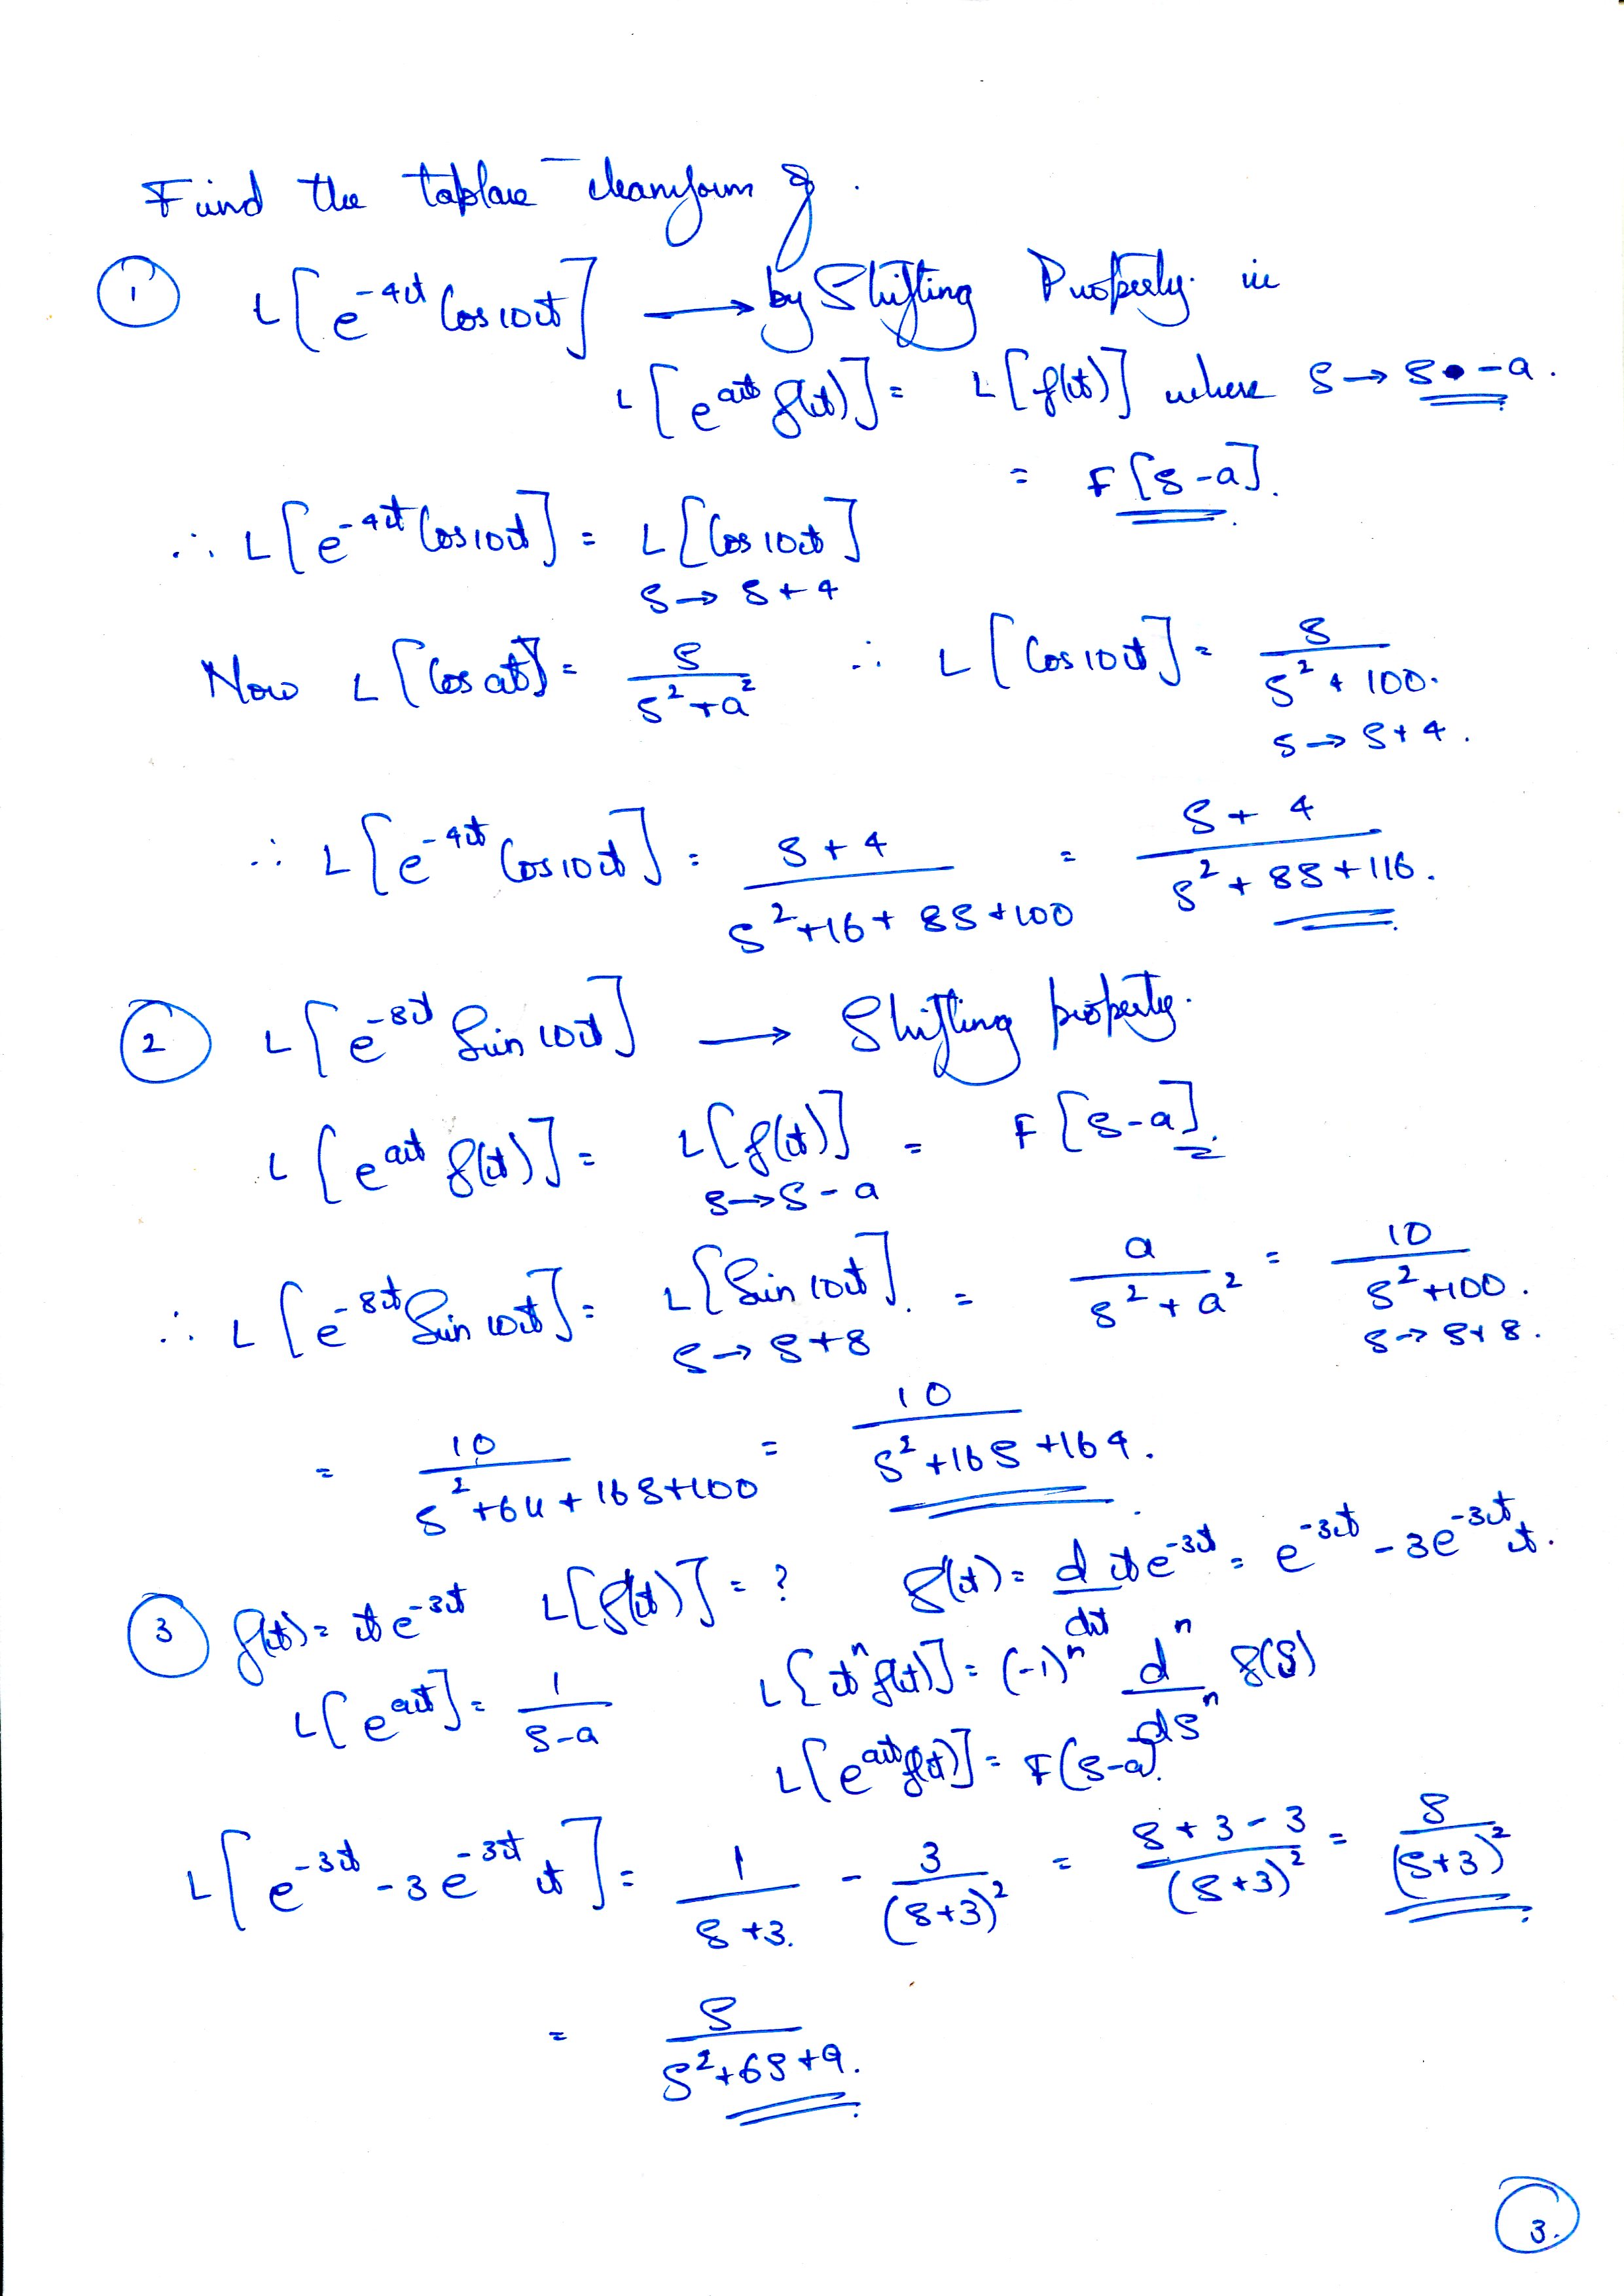 Find the Laplace transform of.
① L[e^{-4t} Cos10t] → by Shifting Property. ie
L[e^{at} f(t)] = L[f(t)] where s → s-a.
= F[s-a].
∴ L[e^{-4t} Cos10t] = L[Cos 10t]
s → s+4
Now L[Cos at] = s/(s²+a²) ∴ L[Cos 10t] = s/(s²+100.
s → s+4.
∴ L[e^{-4t} Cos10t] = (s+4)/(s²+16+8s+100) = (s+4)/(s²+8s+116).
② L[e^{-8t} Sin 10t] → Shifting property.
L[e^{at} f(t)] = L[f(t)] = F[s-a].
s→s-a
∴ L[e^{-8t} Sin 10t] = L[Sin 10t]. = a/(s²+a²) = 10/(s²+100).
s → s+8 s→ s+8.
= 10/(s²+64+16s+100) = 10/(s²+16s+164).
③ f(t) = te^{-3t} L[f(t)] = ? f(t) = d/dt te^{-3t} = e^{-3t} - 3e^{-3t}t.
L[e^{at}] = 1/(s-a) L[t^n f(t)] = (-1)^n d^n/ds^n f(s)
L[e^{at}f(t)] = F(s-a).
L[e^{-3t} - 3e^{-3t} t] = 1/(s+3). - 3/(s+3)² = (s+3-3)/(s+3)² = s/(s+3)²
= s/(s²+6s+9).
3.